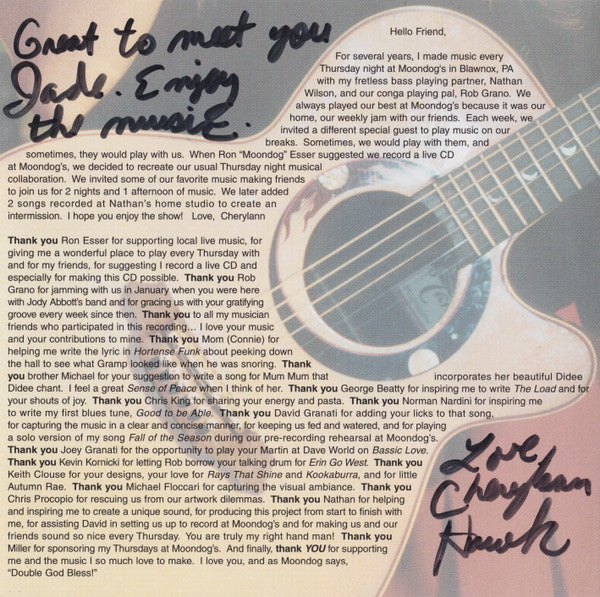 Great to meet you
Jade. Enjoy
the music.
Hello Friend,
For several years, I made music every
Thursday night at Moondog's in Blawnox, PA
with my fretless bass playing partner, Nathan
Wilson, and our conga playing pal, Rob Grano. We
always played our best at Moondog's because it was our
home, our weekly jam with our friends. Each week, we
invited a different special guest to play music on our
breaks. Sometimes, we would play with them, and
sometimes, they would play with us. When Ron "Moondog" Esser suggested we record a live CD
at Moondog's, we decided to recreate our usual Thursday night musical
collaboration. We invited some of our favorite music making friends
to join us for 2 nights and 1 afternoon of music. We later added
2 songs recorded at Nathan's home studio to create an
intermission. I hope you enjoy the show! Love, Cherylann
Thank you Ron Esser for supporting local live music, for
giving me a wonderful place to play every Thursday with
and for my friends, for suggesting I record a live CD and
especially for making this CD possible. Thank you Rob
Grano for jamming with us in January when you were here
with Jody Abbott's band and for gracing us with your gratifying
groove every week since then. Thank you to all my musician
friends who participated in this recording... I love your music
and your contributions to mine. Thank you Mom (Connie) for
helping me write the lyric in Hortense Funk about peeking down
the hall to see what Gramp looked like when he was snoring. Thank
you brother Michael for your suggestion to write a song for Mum Mum that incorporates her beautiful Didee
Didee chant. I feel a great Sense of Peace when I think of her. Thank you George Beatty for inspiring me to write The Load and for
your shouts of joy. Thank you Chris King for sharing your energy and pasta. Thank you Norman Nardini for inspiring me
to write my first blues tune, Good to be Able. Thank you David Granati for adding your licks to that song,
for capturing the music in a clear and concise manner, for keeping us fed and watered, and for playing
a solo version of my song Fall of the Season during our pre-recording rehearsal at Moondog's.
Thank you Joey Granati for the opportunity to play your Martin at Dave World on Bassic Love.
Thank you Kevin Kornicki for letting Rob borrow your talking drum for Erin Go West. Thank you
Keith Clouse for your designs, your love for Rays That Shine and Kookaburra, and for little
Autumn Rae. Thank you Michael Floccari for capturing the visual ambiance. Thank you
Chris Procopio for rescuing us from our artwork dilemmas. Thank you Nathan for helping
and inspiring me to create a unique sound, for producing this project from start to finish with
me, for assisting David in setting us up to record at Moondog's and for making us and our
friends sound so nice every Thursday. You are truly my right hand man! Thank you
Miller for sponsoring my Thursdays at Moondog's. And finally, thank YOU for supporting
me and the music I so much love to make. I love you, and as Moondog says,
"Double God Bless!"
Love
Cherylann
Hawk